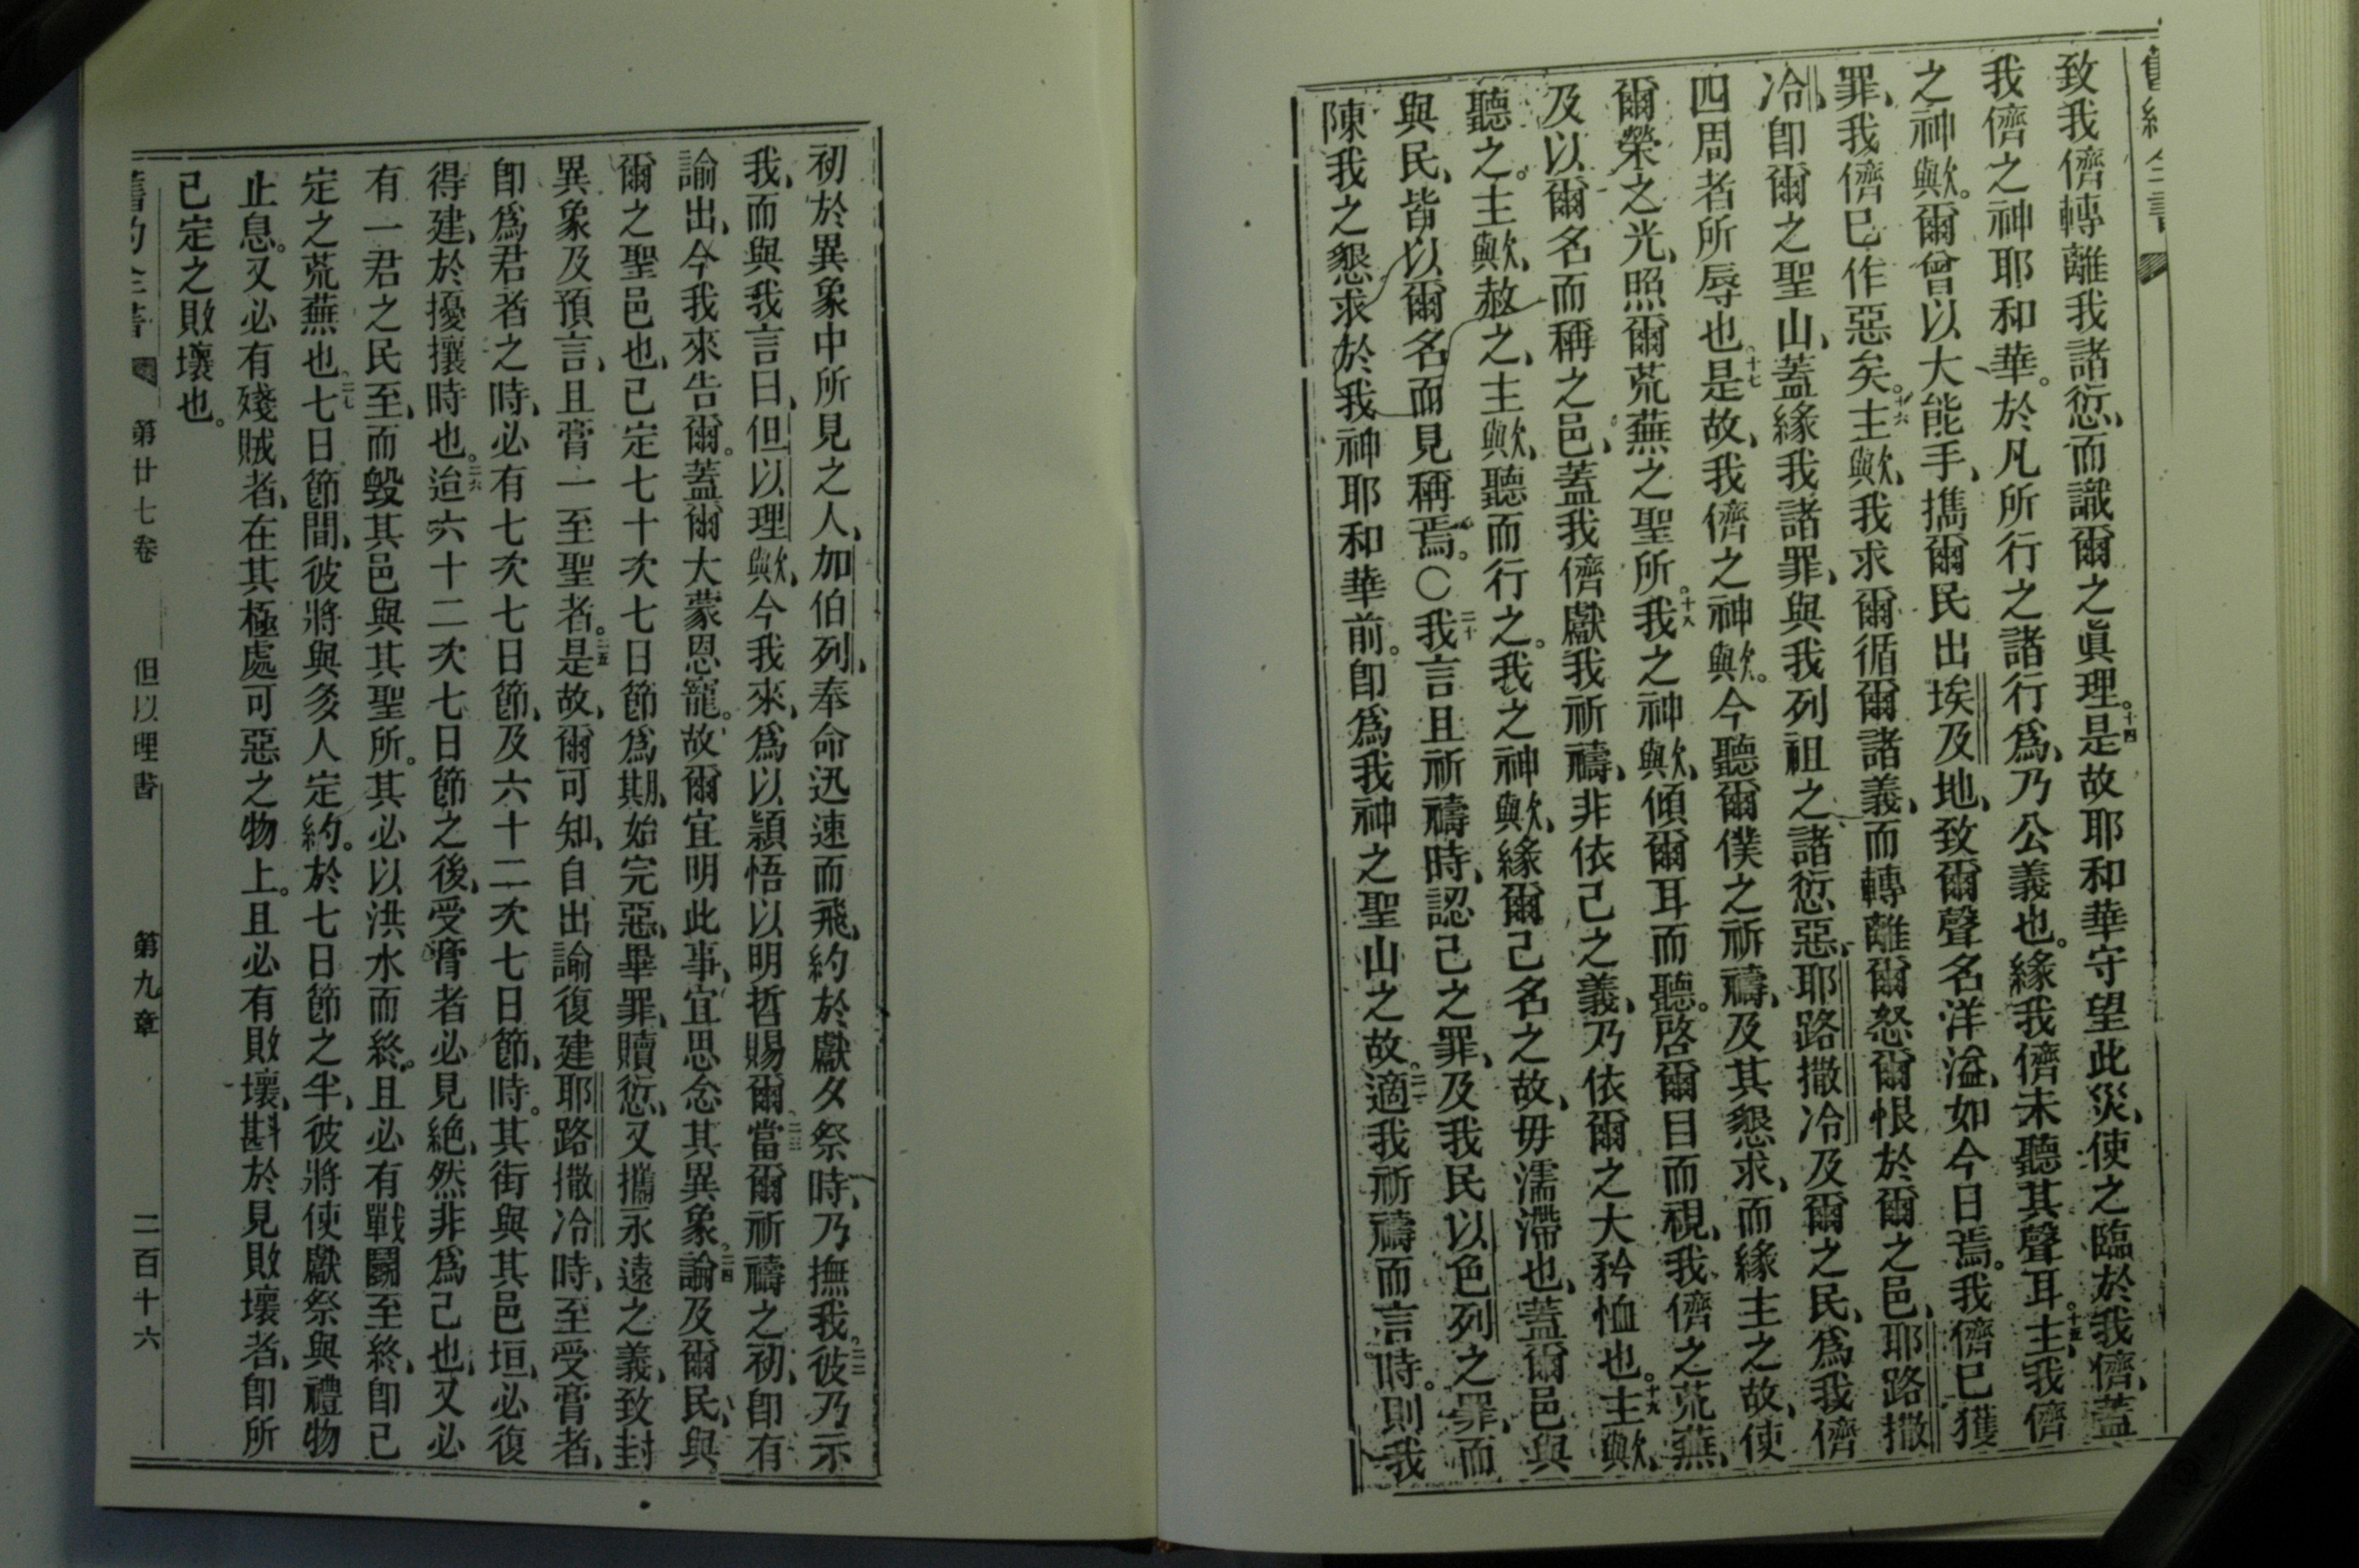 致我儕轉離我諸愆、而識爾之眞理。十四是故耶和華守望此災、使之臨於我儕、蓋
我儕之神耶和華。於凡所行之諸行爲、乃公義也。緣我儕未聽其聲耳。十五主我儕
之神歟。爾曾以大能手、攜爾民出埃及地、致爾聲名洋溢、如今日焉。我儕已獲
罪、我儕已作惡矣。十六主歟、我求爾循爾諸義、而轉離爾怒爾恨於爾之邑、耶路撒
冷、卽爾之聖山、蓋緣我諸罪、與我列祖之諸愆惡、耶路撒冷及爾之民、爲我儕
四周者所辱也。十七是故、我儕之神歟。今聽爾僕之祈禱、及其懇求、而緣主之故、使
爾榮之光、照爾荒蕪之聖所。十八我之神歟、傾爾耳而聽。啓爾目而視、我儕之荒蕪、
及以爾名而稱之邑、蓋我儕獻我祈禱、非依己之義、乃依爾之大矜恤也。十九主歟、
聽之。主歟、赦之、主歟、聽而行之。我之神歟、緣爾己名之故、毋濡滯也、蓋爾邑與
與民、皆以爾名而見稱焉。〇二十我言且祈禱時、認己之罪、及我民以色列之罪、而
陳我之懇求於我神耶和華前。卽爲我神之聖山之故。二一適我祈禱而言時。則我
初於異象中所見之人、加伯列、奉命迅速而飛、約於獻夕祭時、乃撫我。二二彼乃示
我、而與我言曰、但以理歟、今我來、爲以穎悟以明哲賜爾、二三當爾祈禱之初、卽有
諭出、今我來告爾。蓋爾大蒙恩寵。故爾宜明此事、宜思念其異象。二四論及爾民、與
爾之聖邑也、已定七十次七日節爲期、始完惡、畢罪、贖愆、又攜永遠之義、致封
異象及預言、且膏一至聖者。二五是故、爾可知、自出諭復建耶路撒冷時、至受膏者、
卽爲君者之時、必有七次七日節、及六十二次七日節、時。其街與其邑垣、必復
得建、於擾攘時也。二六迨六十二次七日節之後、受膏者必見絕、然非爲己也、又必
有一君之民至、而毀其邑與其聖所。其必以洪水而終。且必有戰鬭至終、卽已
定之荒蕪也。二七七日節間、彼將與多人定約。於七日節之半、彼將使獻祭與禮物
止息。又必有殘賊者、在其極處可惡之物上。且必有敗壞、斟於見敗壞者、卽所
已定之敗壞也。
第廿七卷 但以理書 第九章 二百十六